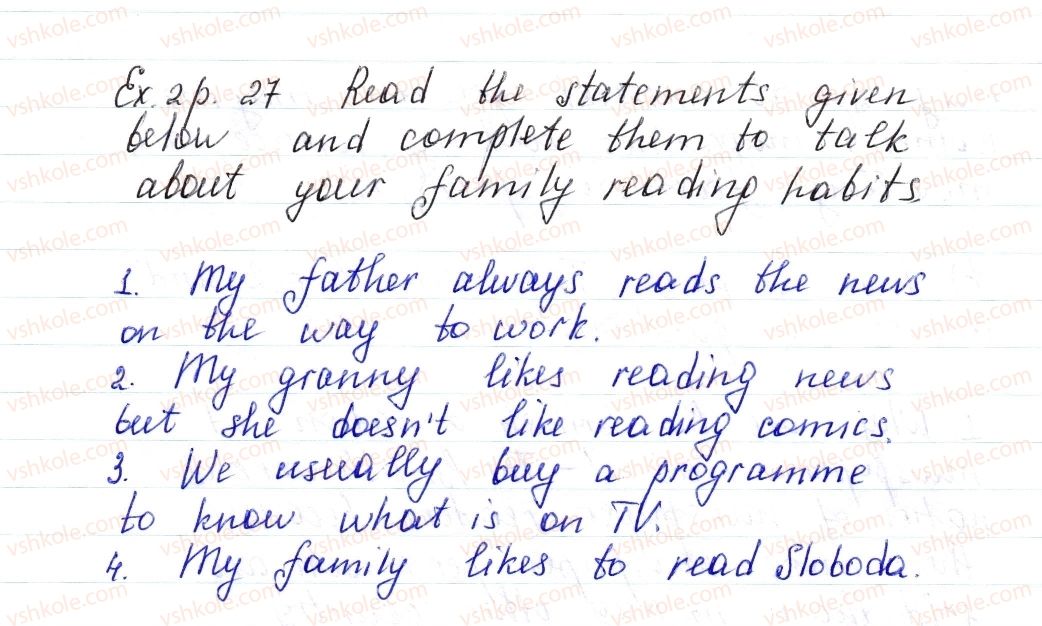 Ex. 2 p. 27 Read the statements given
below and complete them to talk
about your family reading habits.
1. My father always reads the news
on the way to work.
2. My granny likes reading news
but she doesn't like reading comics.
3. We usually buy a programme
to know what is on TV.
4. My family likes to read Sloboda.